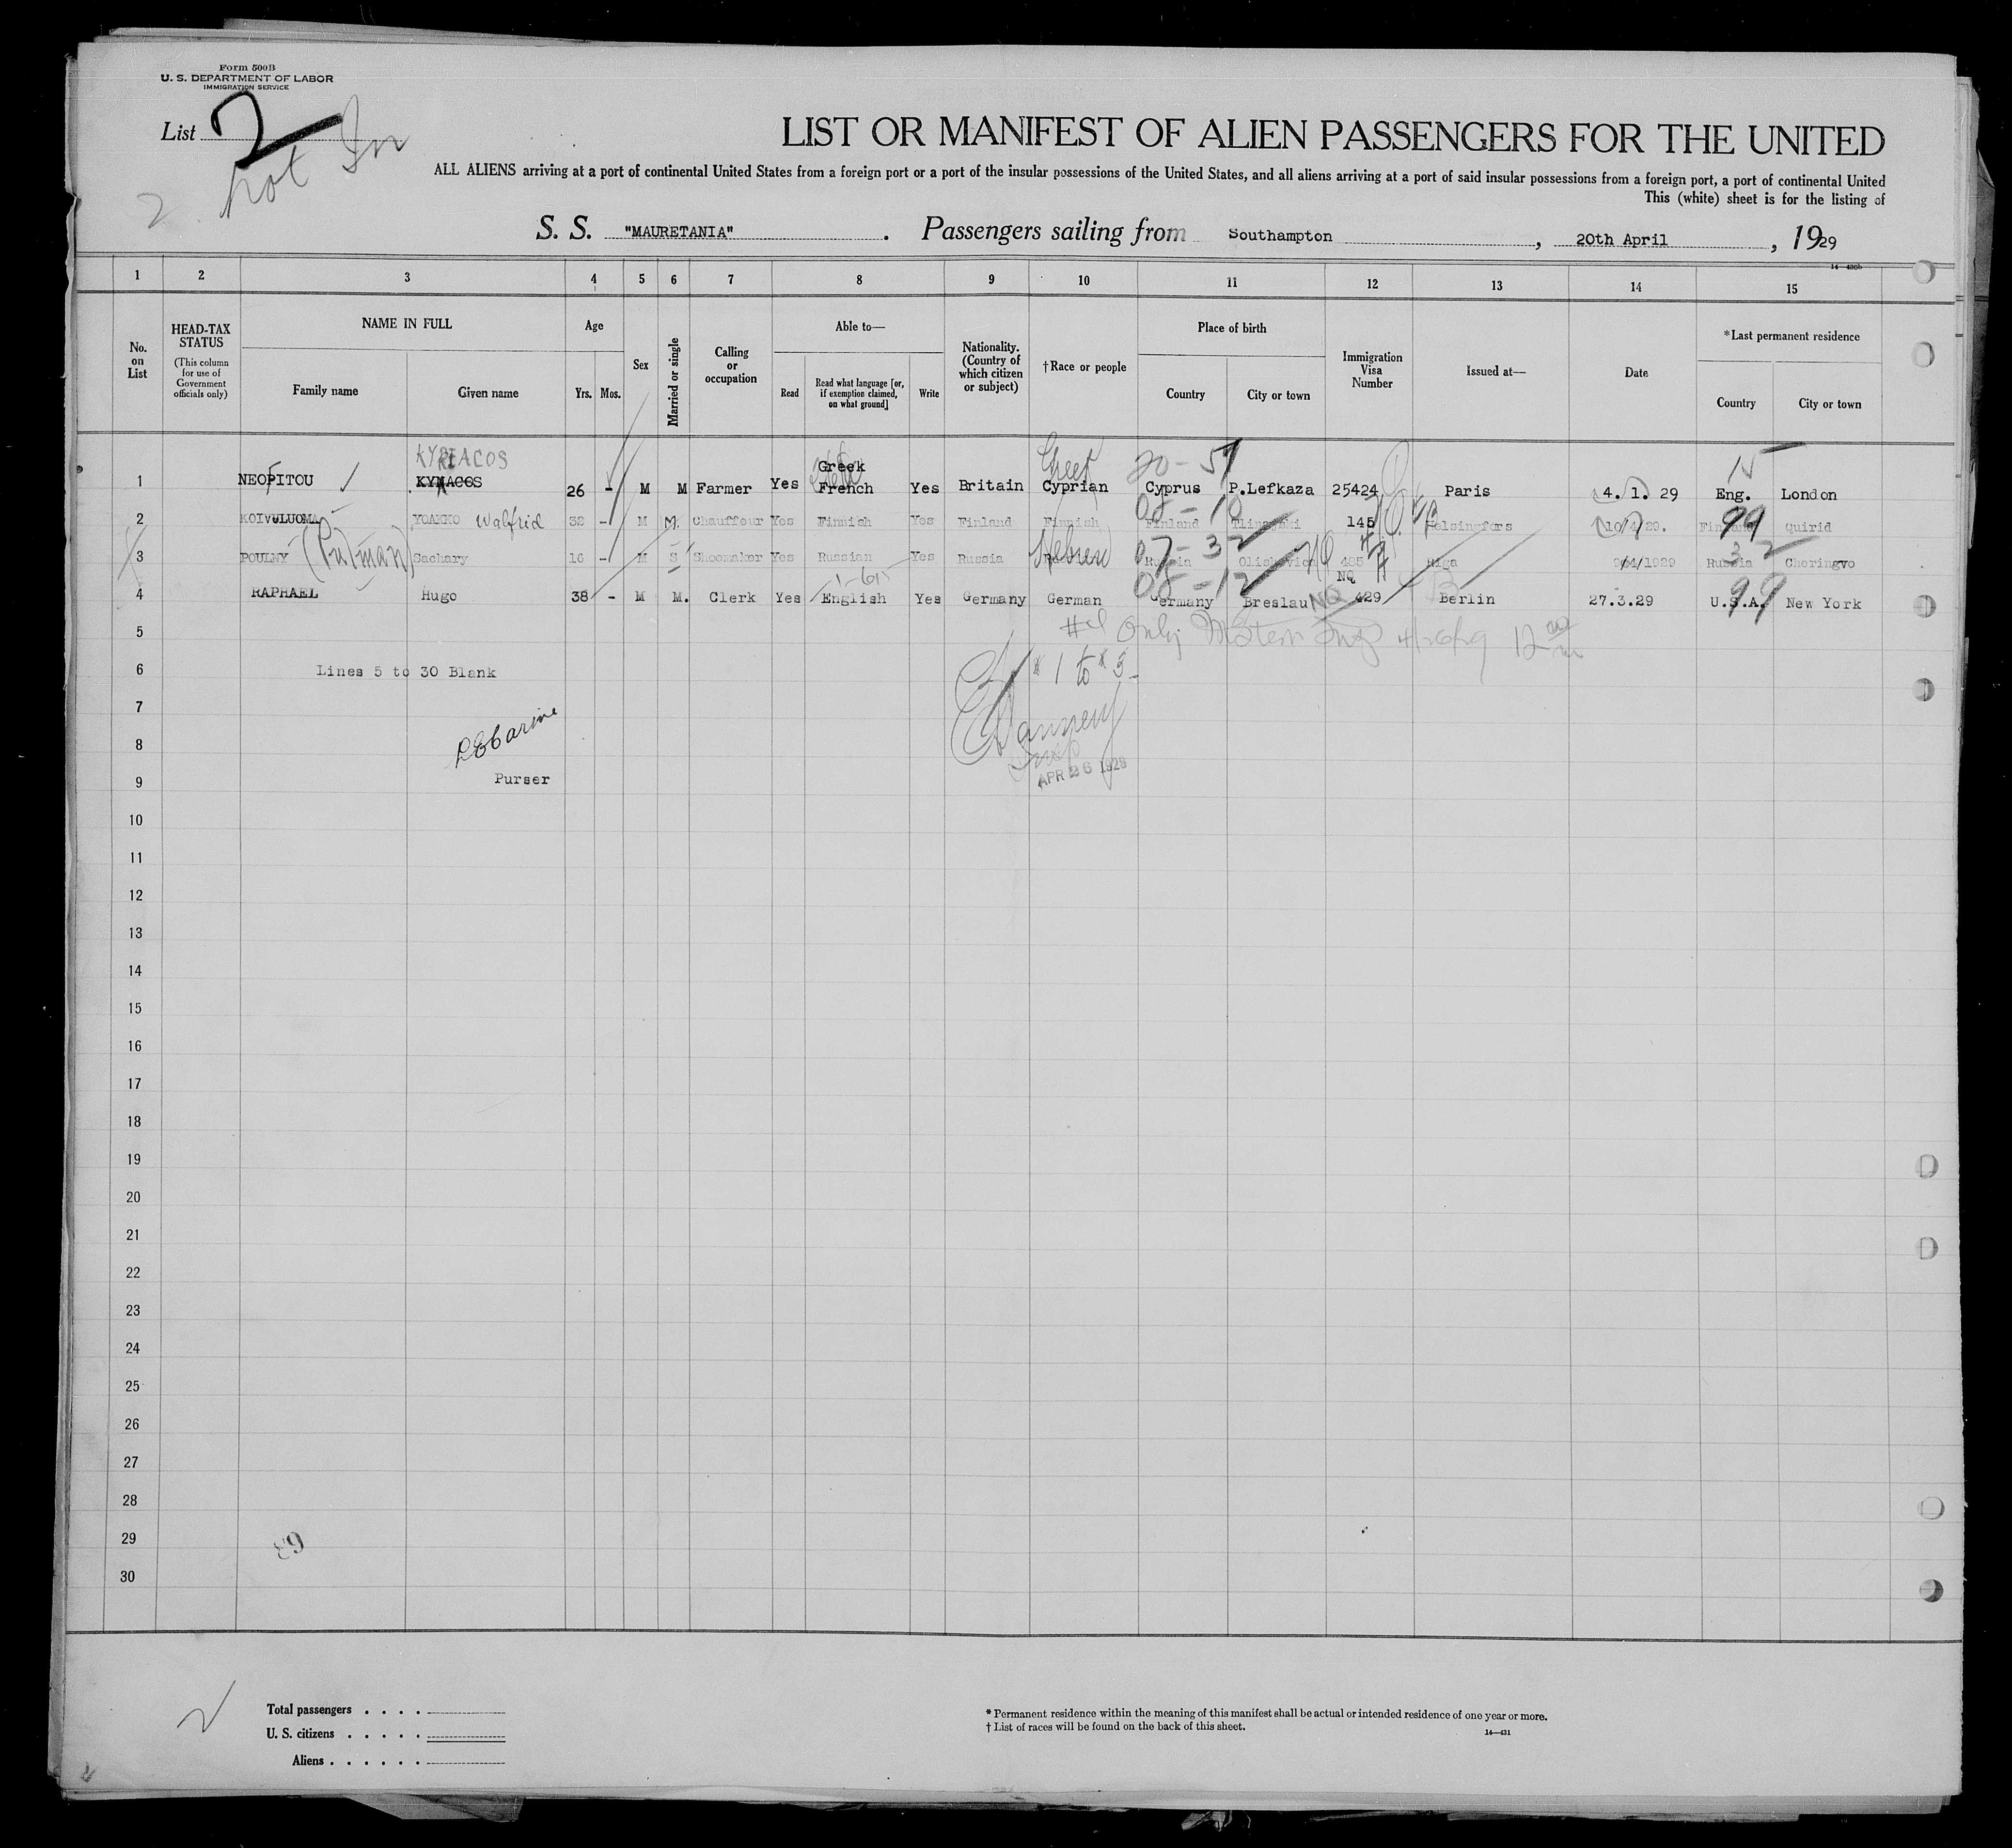 Form 500B
U. S. DEPARTMENT OF LABOR
IMMIGRATION SERVICE
List 2
not In
2
LIST OR MANIFEST OF ALIEN PASSENGERS FOR THE UNITED
ALL ALIENS arriving at a port of continental United States from a foreign port or a port of the insular possessions of the United States, and all aliens arriving at a port of said insular possessions from a foreign port, a port of continental United
This (white) sheet is for the listing of
S. S. "MAURETANIA". Passengers sailing from Southampton, 20th April, 1929
14—430b
1 2 3 4 5 6 7 8 9 10 11 12 13 14 15
No. on List
HEAD-TAX STATUS (This column for use of Government officials only)
NAME IN FULL Family name Given name
Age Yrs. Mos.
Sex
Married or single
Calling or occupation
Able to— Read Read what language [or, if exemption claimed, on what ground] Write
Nationality. (Country of which citizen or subject)
†Race or people
Place of birth Country City or town
Immigration Visa Number
Issued at—
Date
*Last permanent residence Country City or town
KYRIACOS Greek Greek 20-57 15
1 NEOFITOU KYMACOS 26 - M M Farmer Yes French Yes Britain Cyprian Cyprus P.Lefkaza 25424 Paris 4. 1. 29 Eng. London
08-10
2 KOIVULUOMA YOAKKO Walfrid 32 - M M. Chauffeur Yes Finnish Yes Finland Finnish Finland 145 Helsingfors 10/4/29. Finland 99 Quirid
07-32
3 POULNY (Pulman) Sachary 16 - M S Shoemaker Yes Russian Yes Russia Hebrew Russia 485 Riga 9/4/1929 Russia 32 Choringvo
08-12 1-615 NQ
4 RAPHAEL Hugo 38 - M M. Clerk Yes English Yes Germany German Germany Breslau NQ 429 Berlin 27.3.29 U.S.A. 99 New York
5 #4 Only 4/26/29 12
6 Lines 5 to 30 Blank # 1 to # 3
7
8
Insp
9 Purser APR 26 1929
10
11
12
13
14
15
16
17
18
19
20
21
22
23
24
25
26
27
28
29 89
30
Total passengers . . . .
U. S. citizens . . . . .
Aliens . . . . . .
* Permanent residence within the meaning of this manifest shall be actual or intended residence of one year or more.
† List of races will be found on the back of this sheet.
14—431